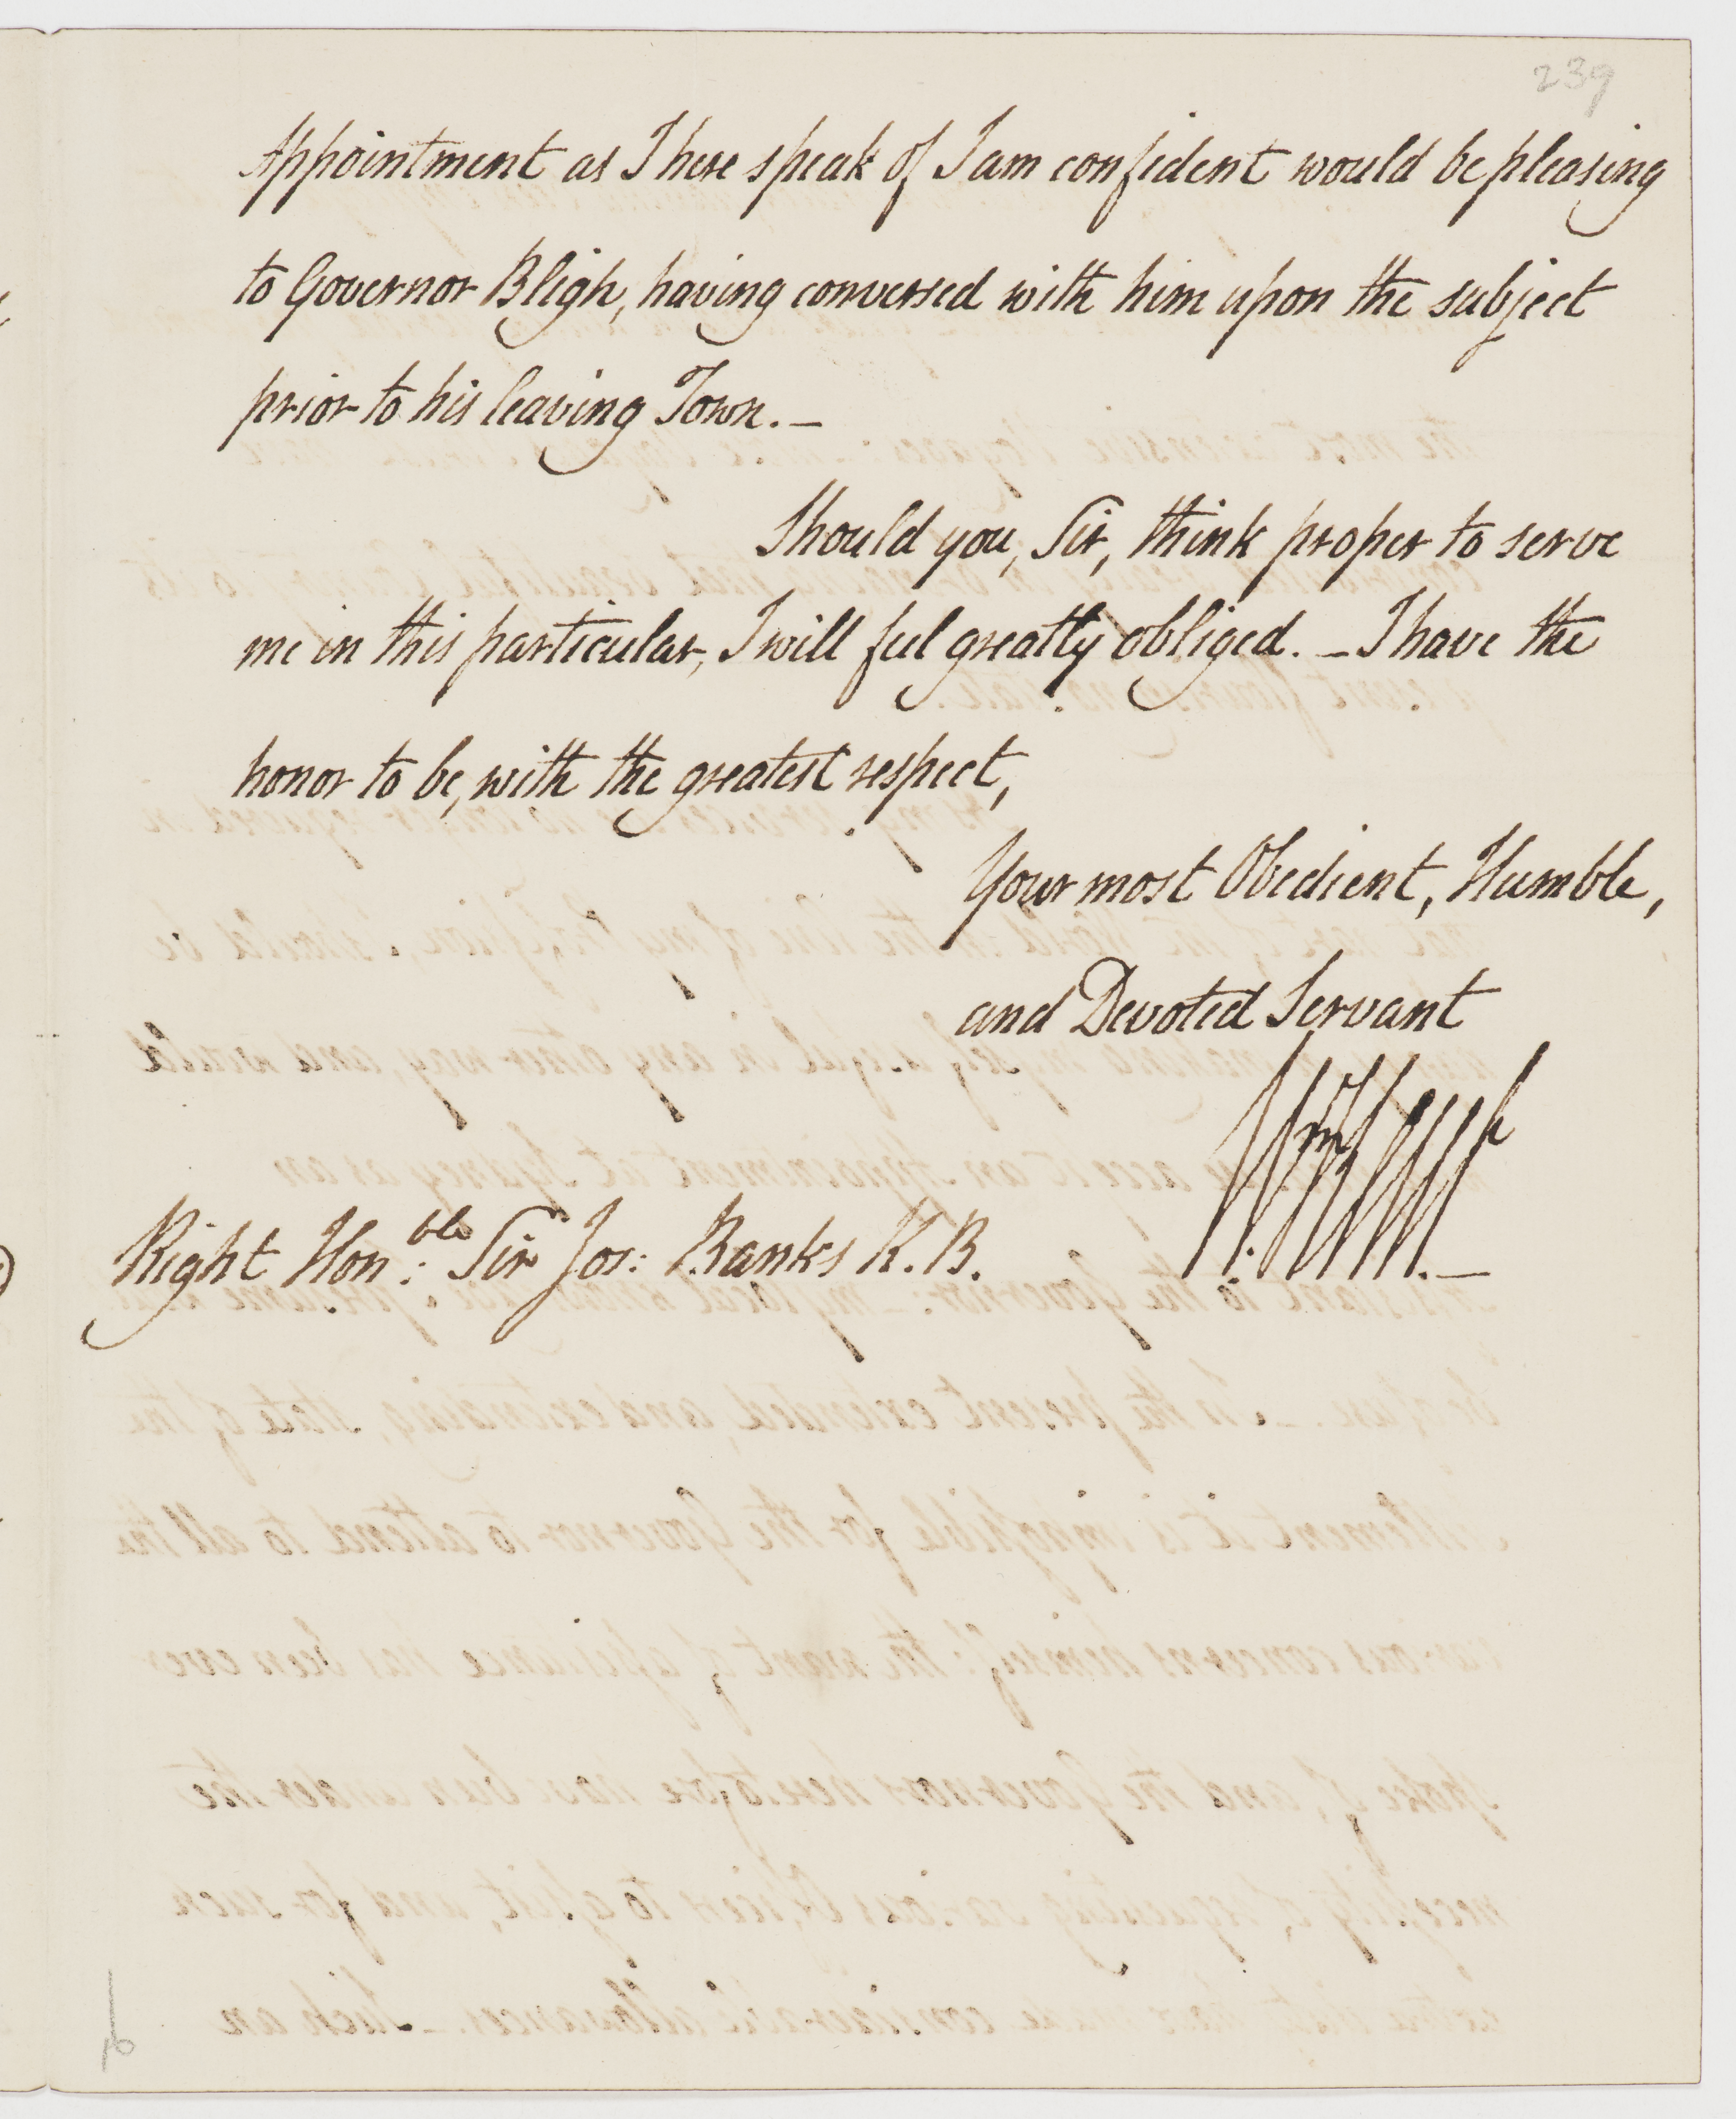 239
Appointment as I here speak of I am confident would be pleasing
to Governor Bligh, having conversed with him upon the subject
prior to his leaving Town. _
Should you, Sir, think proper to serve
me in this particular, I will feel greatly obliged. _ I have the
honor to be, with the greatest respect,
Your most Obedient, Humble,
and Devoted Servant
Right Hon:ble Sir Jos: Banks K.B.